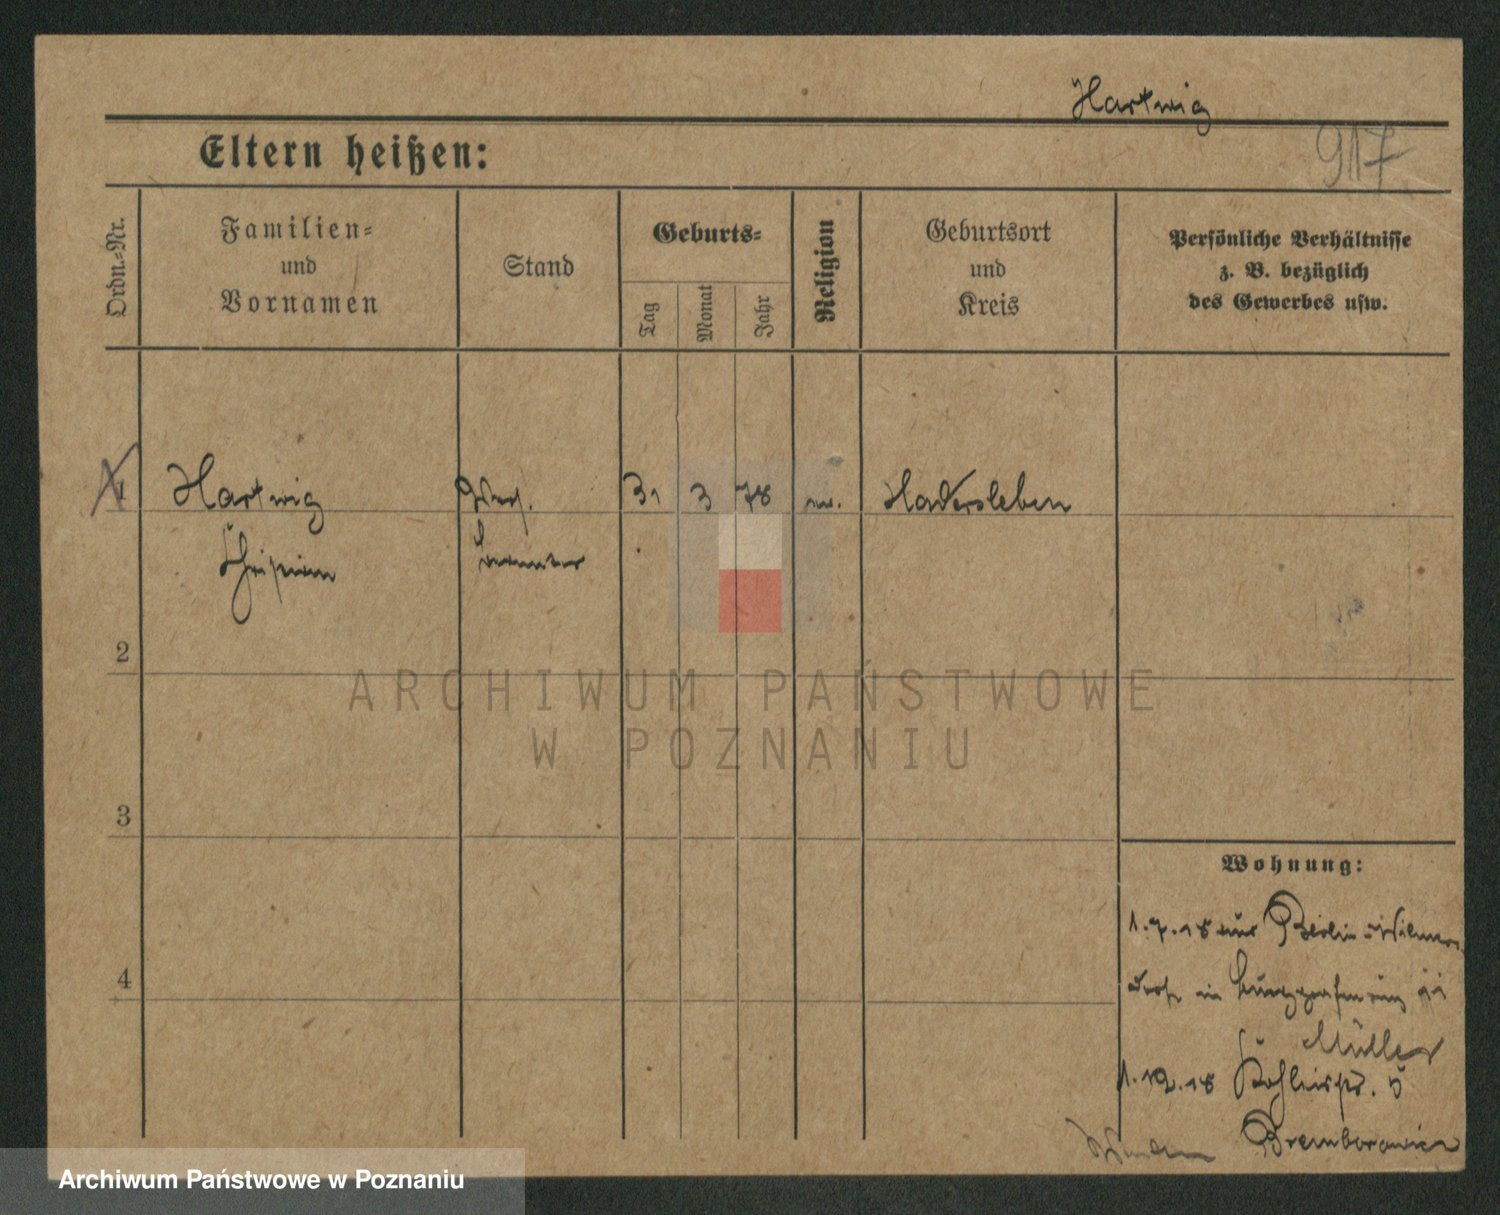 Hartwig
917
Eltern heißen:
Ordn.-Nr.
Familien-
und
Vornamen
Stand
Geburts-
Tag
Monat
Jahr
Religion
Geburtsort
und
Kreis
Persönliche Verhältnisse
z. B. bezüglich
des Gewerbes usw.
1 Hartwig 31 3 78 Hadersleben
2
3
4
Wohnung:
1.7.18 aus Berlin-Wilmers
dorf
Müller
1.12.18
ARCHIWUM PAŃSTWOWE
W POZNANIU
Archiwum Państwowe w Poznaniu